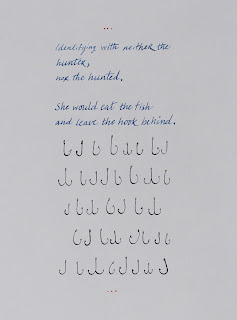 Identifying with neither the
hunter,
nor the hunted.
She would eat the fish
and leave the hook behind.